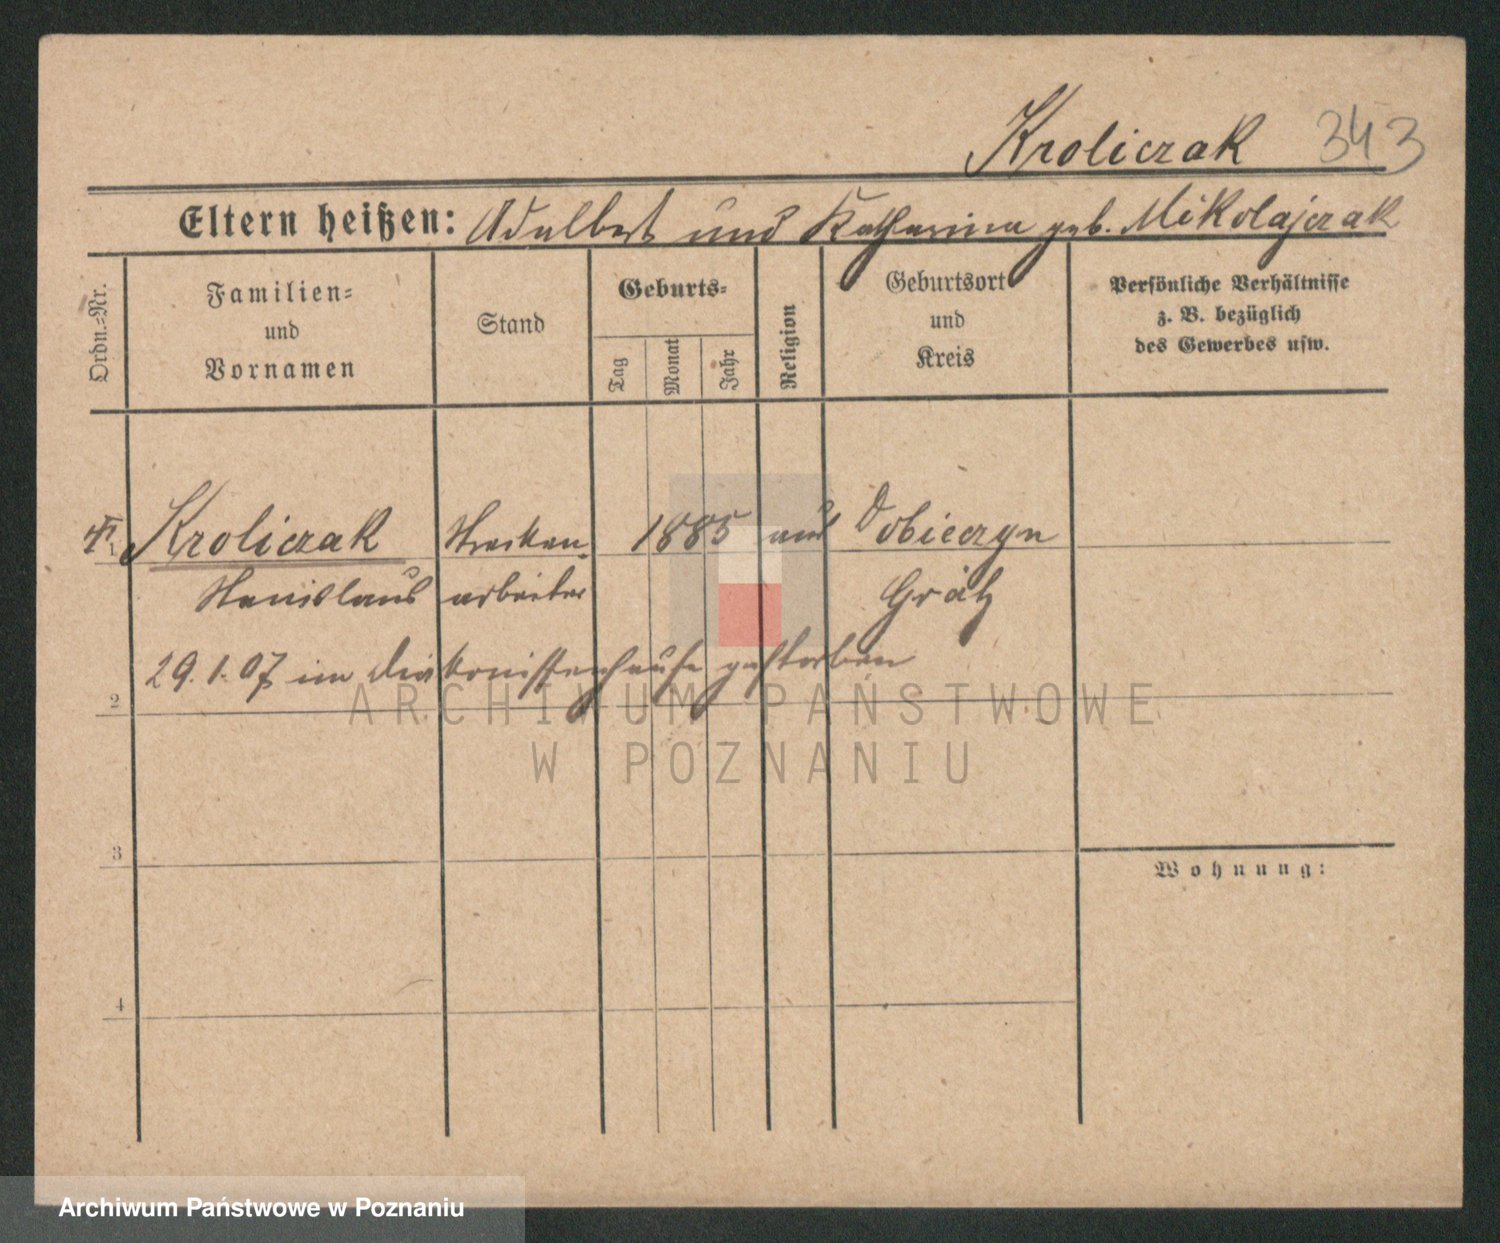 Kroliczak 343
Eltern heißen: Adalbert und Katharina geb. Mikolajczak
Ordn.-Nr.
Familien-
und
Vornamen
Stand
Geburts-
Tag
Monat
Jahr
Religion
Geburtsort
und
Kreis
Persönliche Verhältnisse
z. B. bezüglich
des Gewerbes usw.
1 Kroliczak Strecken- 1885 aus Dobieczyn
Stanislaus arbeiter Grätz
29. 1. 07 im Diakonissenhause gestorben
2
ARCHIWUM PAŃSTWOWE
W POZNANIU
3
Wohnung:
4
Archiwum Państwowe w Poznaniu